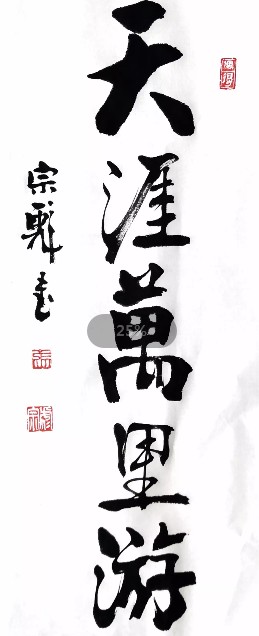 天涯萬里游
宗彝書
25%